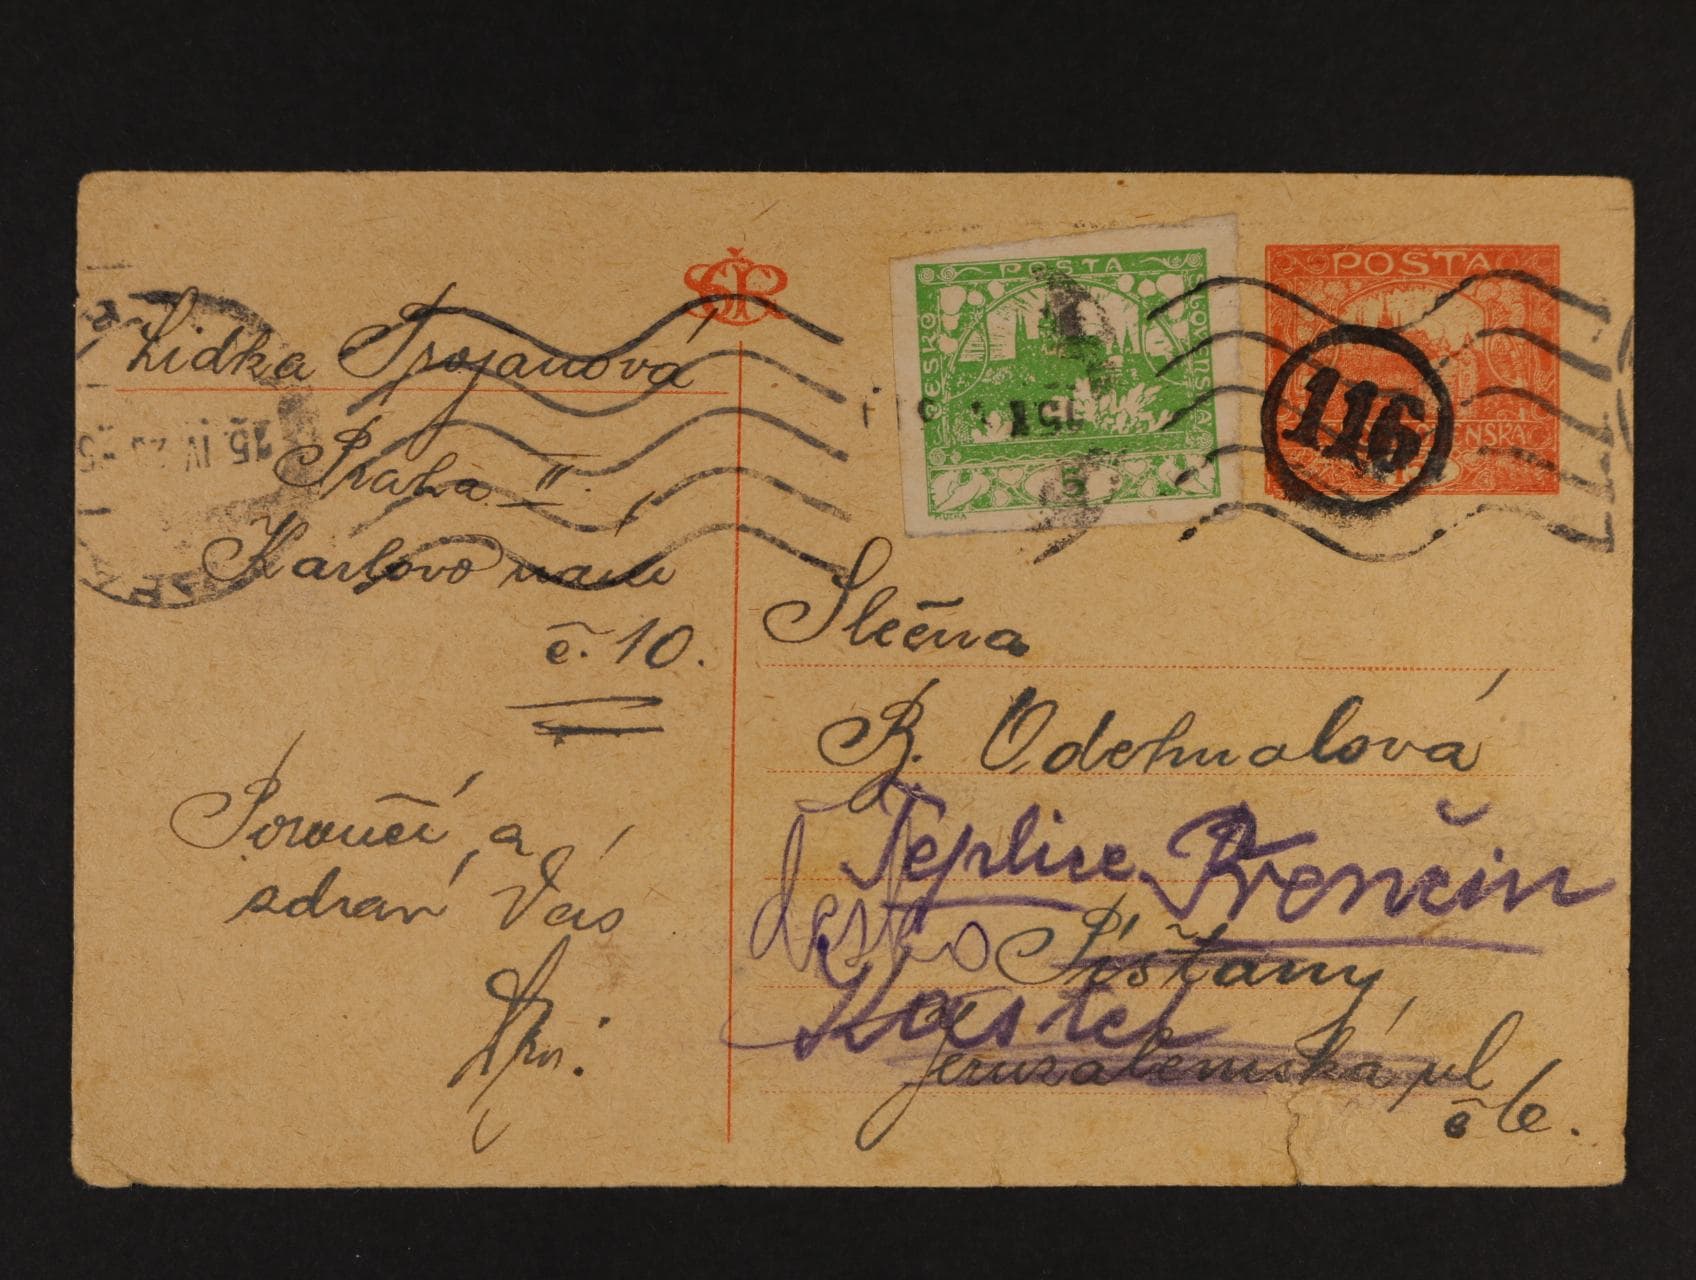 SČR
Lidka Trojanová
Praha II.
Karlovo nám
č. 10.
Poroučí a
zdraví Vás
POSTA
ČESKO
SLOVENSKÁ
5
MUCHA
15 IV
POSTA
116
15. IV 20
Slečna
B. Odehnalová
Teplice Trenčín
Česko
Píšťany,
Kastel
Jeruzalemská ul
č 6.